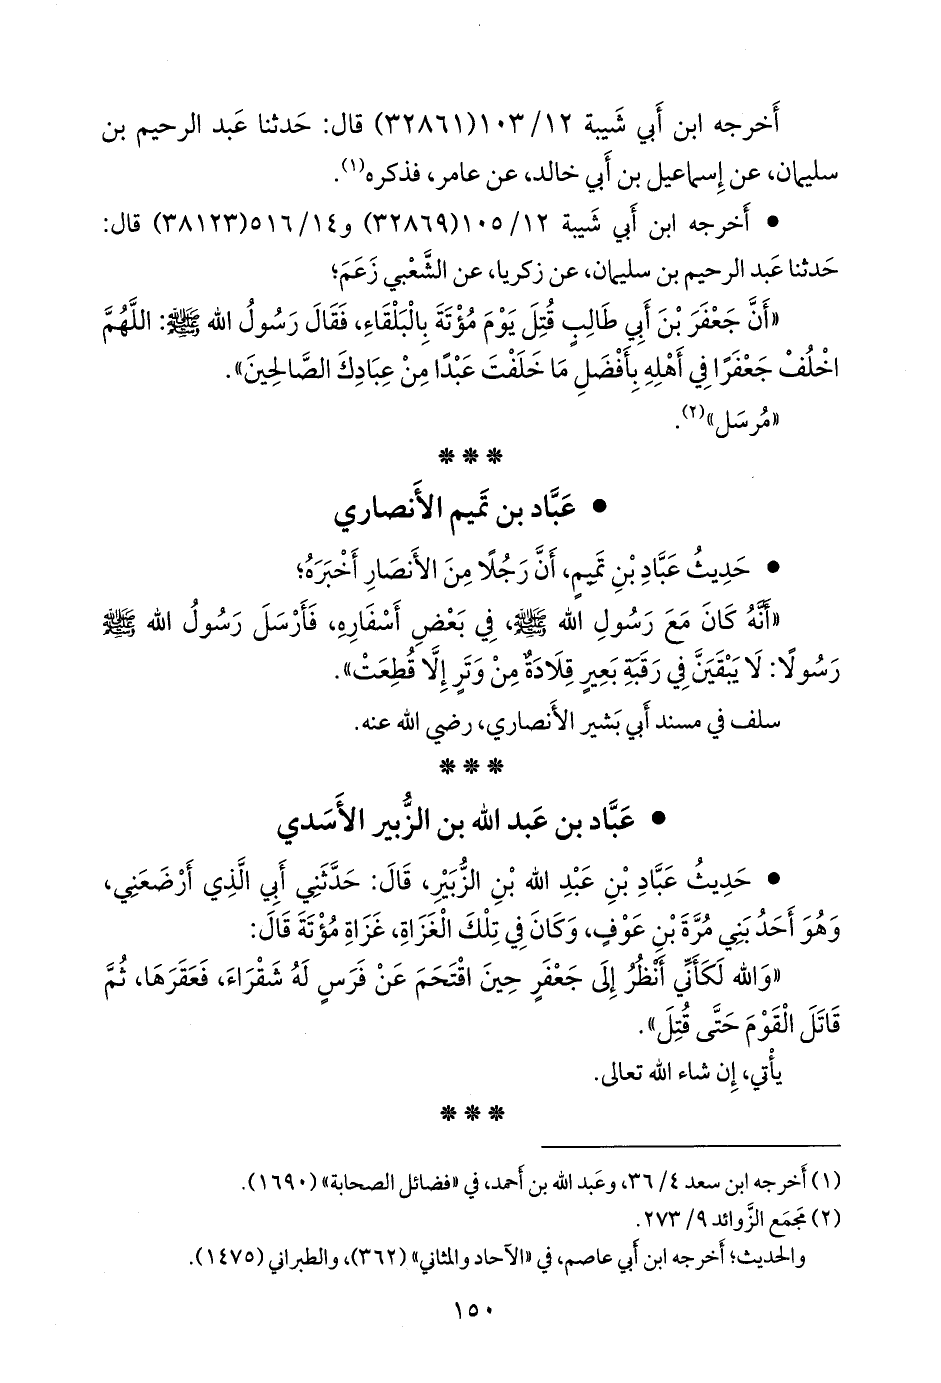 أَخرجه ابن أَبي شَيبة ١٢/ ١٠٣(٣٢٨٦١) قال: حَدثنا عَبد الرحيم بن
سليمان، عن إِسماعيل بن أَبي خالد، عن عامر، فذكره(١).
• أَخرجه ابن أَبي شَيبة ١٢/ ١٠٥(٣٢٨٦٩) و١٤/ ٥١٦(٣٨١٢٣) قال:
حَدثنا عَبد الرحيم بن سليمان، عن زكريا، عن الشَّعْبي زَعَمَ؛
«أَنَّ جَعْفَرَ بْنَ أَبِي طَالِبٍ قُتِلَ يَوْمَ مُؤْتَةَ بِالْبَلْقَاءِ، فَقَالَ رَسُولُ الله ﷺ: اللَّهُمَّ
اخْلُفْ جَعْفَرًا فِي أَهْلِهِ بِأَفْضَلِ مَا خَلَفْتَ عَبْدًا مِنْ عِبَادِكَ الصَّالِحِينَ».
«مُرسَل»(٢).
* * *
• عَبَّاد بن تَميم الأَنصاري
• حَدِيثُ عَبَّادِ بْنِ تَمِيمٍ، أَنَّ رَجُلًا مِنَ الأَنصَارِ أَخْبَرَهُ؛
«أَنَّهُ كَانَ مَعَ رَسُولِ الله ﷺ، فِي بَعْضِ أَسْفَارِهِ، فَأَرْسَلَ رَسُولُ الله ﷺ
رَسُولًا: لَا يَبْقَيَنَّ فِي رَقَبَةِ بَعِيرٍ قِلَادَةٌ مِنْ وَتَرٍ إِلَّا قُطِعَتْ».
سلف في مسند أَبي بَشير الأَنصاري، رضي الله عنه.
* * *
• عَبَّاد بن عَبد الله بن الزُّبير الأَسَدي
• حَدِيثُ عَبَّادِ بْنِ عَبْدِ الله بْنِ الزُّبَيْرِ، قَالَ: حَدَّثَنِي أَبِي الَّذِي أَرْضَعَنِي،
وَهُوَ أَحَدُ بَنِي مُرَّةَ بْنِ عَوْفٍ، وَكَانَ فِي تِلْكَ الْغَزَاةِ، غَزَاةِ مُؤْتَةَ قَالَ:
«وَالله لَكَأَنِّي أَنْظُرُ إِلَى جَعْفَرٍ حِينَ اقْتَحَمَ عَنْ فَرَسٍ لَهُ شَقْرَاءَ، فَعَقَرَهَا، ثُمَّ
قَاتَلَ الْقَوْمَ حَتَّى قُتِلَ».
يأْتي، إِن شاء الله تعالى.
* * *
(١) أَخرجه ابن سعد ٤/ ٣٦، وعَبد الله بن أَحمد، في «فضائل الصحابة» (١٦٩٠).
(٢) مَجمَع الزَّوائد ٩/ ٢٧٣.
والحديث؛ أَخرجه ابن أَبي عاصم، في «الآحاد والمثاني» (٣٦٢)، والطبراني (١٤٧٥).
١٥٠